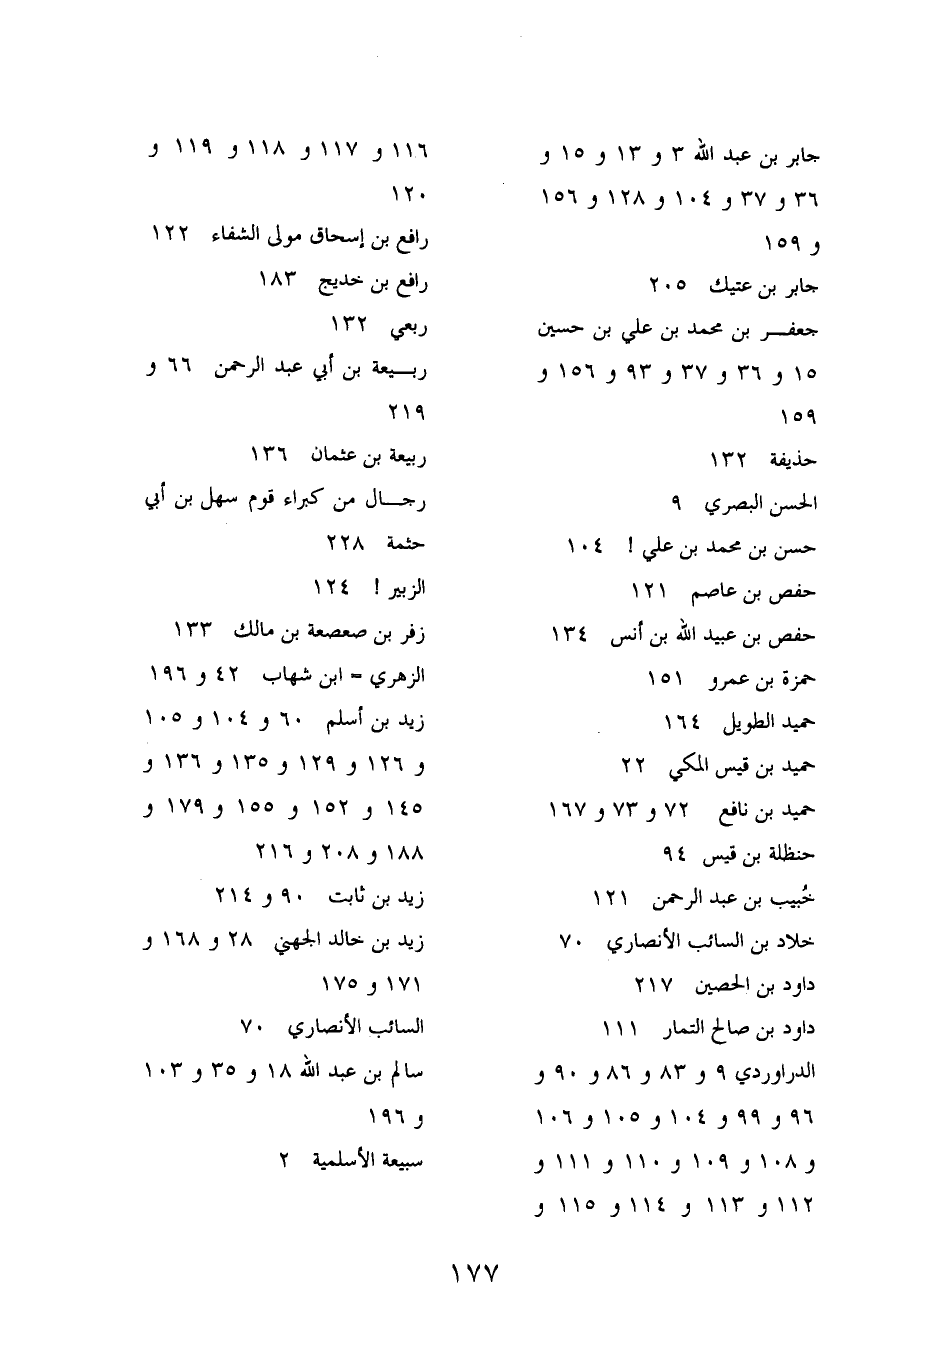 جابر بن عبد الله ٣ و ١٣ و ١٥ و
٣٦ و ٣٧ و ١٠٤ و ١٢٨ و ١٥٦
و ١٥٩
جابر بن عتيك ٢٠٥
جعفـــر بن محمد بن علي بن حسين
١٥ و ٣٦ و ٣٧ و ٩٣ و ١٥٦ و
١٥٩
حذيفة ١٣٢
الحسن البصري ٩
حسن بن محمد بن علي ! ١٠٤
حفص بن عاصم ١٢١
حفص بن عبيد الله بن أنس ١٣٤
حمزة بن عمرو ١٥١
حميد الطويل ١٦٤
حميد بن قيس المكي ٢٢
حميد بن نافع ٧٢ و ٧٣ و ١٦٧
حنظلة بن قيس ٩٤
خُبيب بن عبد الرحمن ١٢١
خلاد بن السائب الأنصاري ٧٠
داود بن الحصين ٢١٧
داود بن صالح التمار ١١١
الدراوردي ٩ و ٨٣ و ٨٦ و ٩٠ و
٩٦ و ٩٩ و ١٠٤ و ١٠٥ و ١٠٦
و ١٠٨ و ١٠٩ و ١١٠ و ١١١ و
١١٢ و ١١٣ و ١١٤ و ١١٥ و
١١٦ و ١١٧ و ١١٨ و ١١٩ و
١٢٠
رافع بن إسحاق مولى الشفاء ١٢٢
رافع بن خديج ١٨٣
ربعي ١٣٢
ربــيعة بن أبي عبد الرحمن ٦٦ و
٢١٩
ربيعة بن عثمان ١٣٦
رجـــال من كبراء قوم سهل بن أبي
حثمة ٢٢٨
الزبير ! ١٢٤
زفر بن صعصعة بن مالك ١٣٣
الزهري = ابن شهاب ٤٢ و ١٩٦
زيد بن أسلم ٦٠ و ١٠٤ و ١٠٥
و ١٢٦ و ١٢٩ و ١٣٥ و ١٣٦ و
١٤٥ و ١٥٢ و ١٥٥ و ١٧٩ و
١٨٨ و ٢٠٨ و ٢١٦
زيد بن ثابت ٩٠ و ٢١٤
زيد بن خالد الجهني ٢٨ و ١٦٨ و
١٧١ و ١٧٥
السائب الأنصاري ٧٠
سالم بن عبد الله ١٨ و ٣٥ و ١٠٣
و ١٩٦
سبيعة الأسلمية ٢
١٧٧